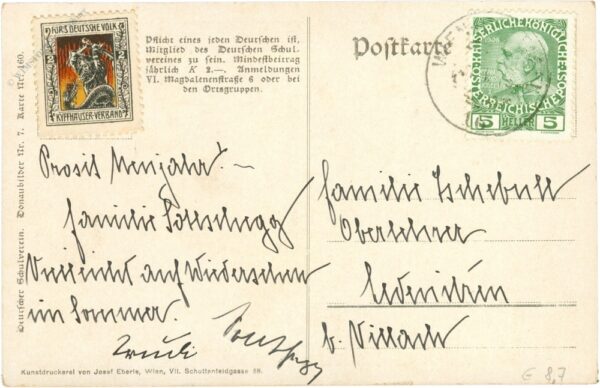 FÜRS DEUTSCHE VOLK
2 2
KYFFHÄUSER-VERBAND
Pflicht eines jeden Deutschen ist,
Mitglied des Deutschen Schul-
vereines zu sein. Mindestbeitrag
jährlich K 2.—. Anmeldungen
VI. Magdalenenstraße 6 oder bei
den Ortsgruppen.
Postkarte
WIEN
KAISERLICHE KÖNIGLICHE
ÖSTERREICHISCHE
5 HELLER 5
Deutscher Schulverein. Donaubilder Nr. 7. Karte Nr. 160.
Prosit Neujahr! –
Familie
Vielleicht auf Wiedersehen
im Sommer.
Familie Tschebull
Oberlehrer
Ledenitzen
b. Villach
Kunstdruckerei von Josef Eberle, Wien, VII. Schottenfeldgasse 38.
€ 8,7